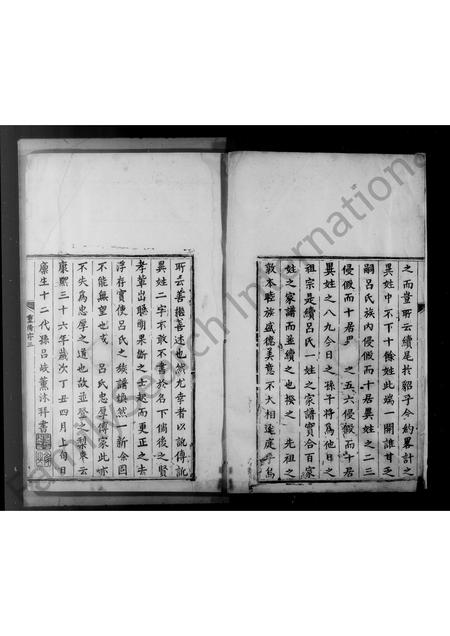 之而豈所云續尾於貂子今約畧計之
異姓中不下十餘姓此端一開誰甘乏
嗣呂氏族內侵假而十居異姓之二三
侵假而十居 之五六侵假而十居
異姓之八九今日之孫子將爲他日之
祖宗是續呂氏一姓之家譜實合百家
姓之家譜而並續之也揆之 先祖之
敦本睦族盛德美意不大相逕庭乎烏
所云善繼善述也然尤幸者以訛傳訛
異姓二字不敢不書於名下倘後之賢
孝輩出聰明果斷之士起而更正之去
浮存實使呂氏之族譜煥然一新余固
不能無望也 呂氏忠厚傳家此亦
不失爲忠厚之道也故並登之梨棗云
康熙三十六年歲次丁丑四月上旬日
廩生十二代孫呂 薰沐拜書
重脩序三
FamilySearch International